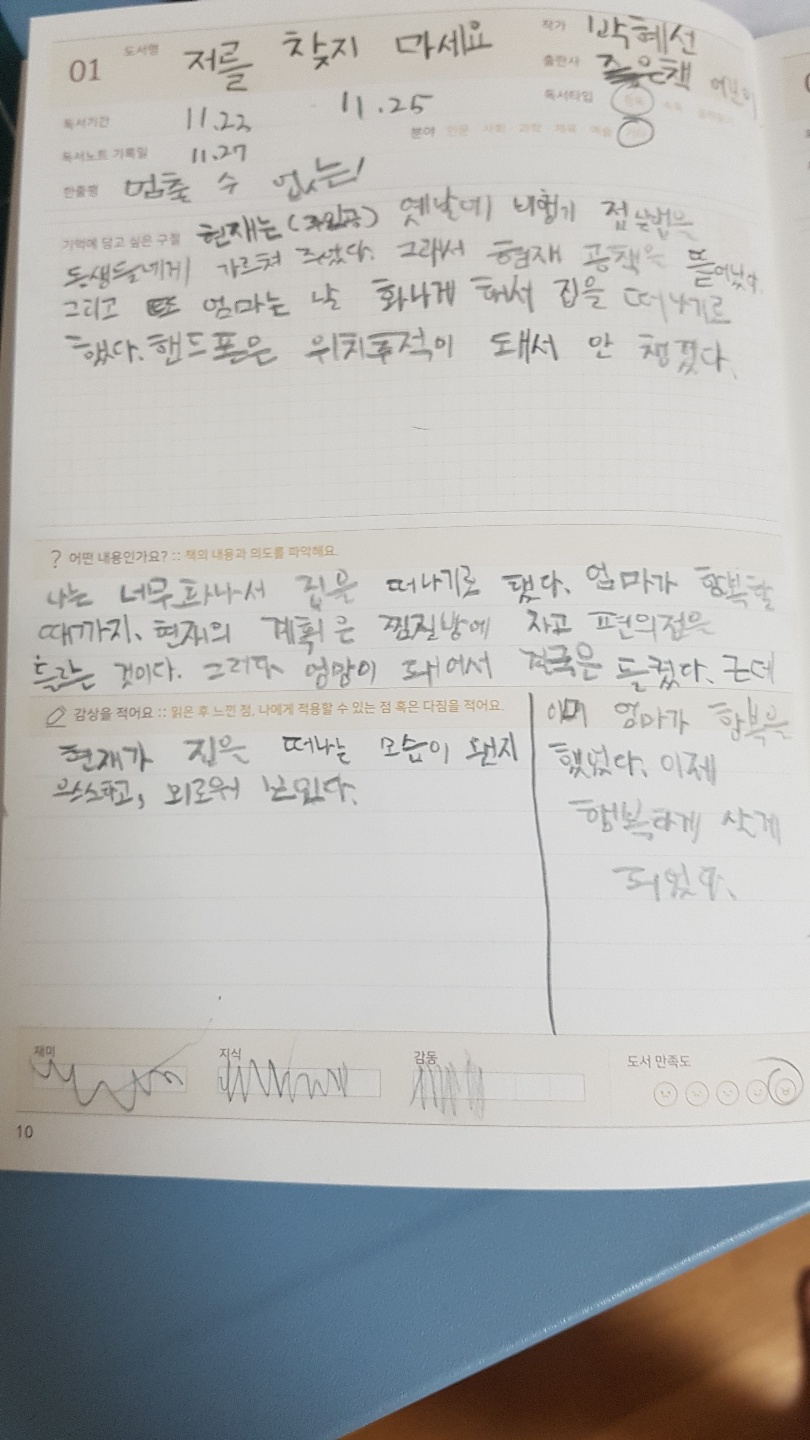 01 도서명 저를 찾지 마세요 작가 박혜선
출판사 좋은책 어린이
독서기간 11.23 - 11.25 독서타입
분야 인문 사회 과학 체육 예술
독서노트 기록일 11.27
한줄평 멈출 수 없는!
기억에 담고 싶은 구절 현재는(주인공) 옛날에 비행기 접는법은
동생들네게 가르쳐 주었다. 그래서 형재 공책은 뜯어냈다.
그리고 또 엄마는 날 화나게 해서 집을 떠나기로
했다. 핸드폰은 위치추적이 돼서 안 챙겼다.
? 어떤 내용인가요? :: 책의 내용과 의도를 파악해요.
나는 너무화나서 집을 떠나기로 했다. 엄마가 행복할
때까지. 현재의 계획은 찜질방에 자고 편의점은
들리는 것이다. 그러다 엉망이 되어서 결국은 들켰다. 근데
감상을 적어요 :: 읽은 후 느낀 점, 나에게 적용할 수 있는 점 혹은 다짐을 적어요.
현재가 집은 떠나는 모습이 왠지
쓰고, 외로워 보였다.
이미 엄마가 행복을
했었다. 이제
행복하게 살게
되었다.
재미 지식 감동 도서 만족도
10